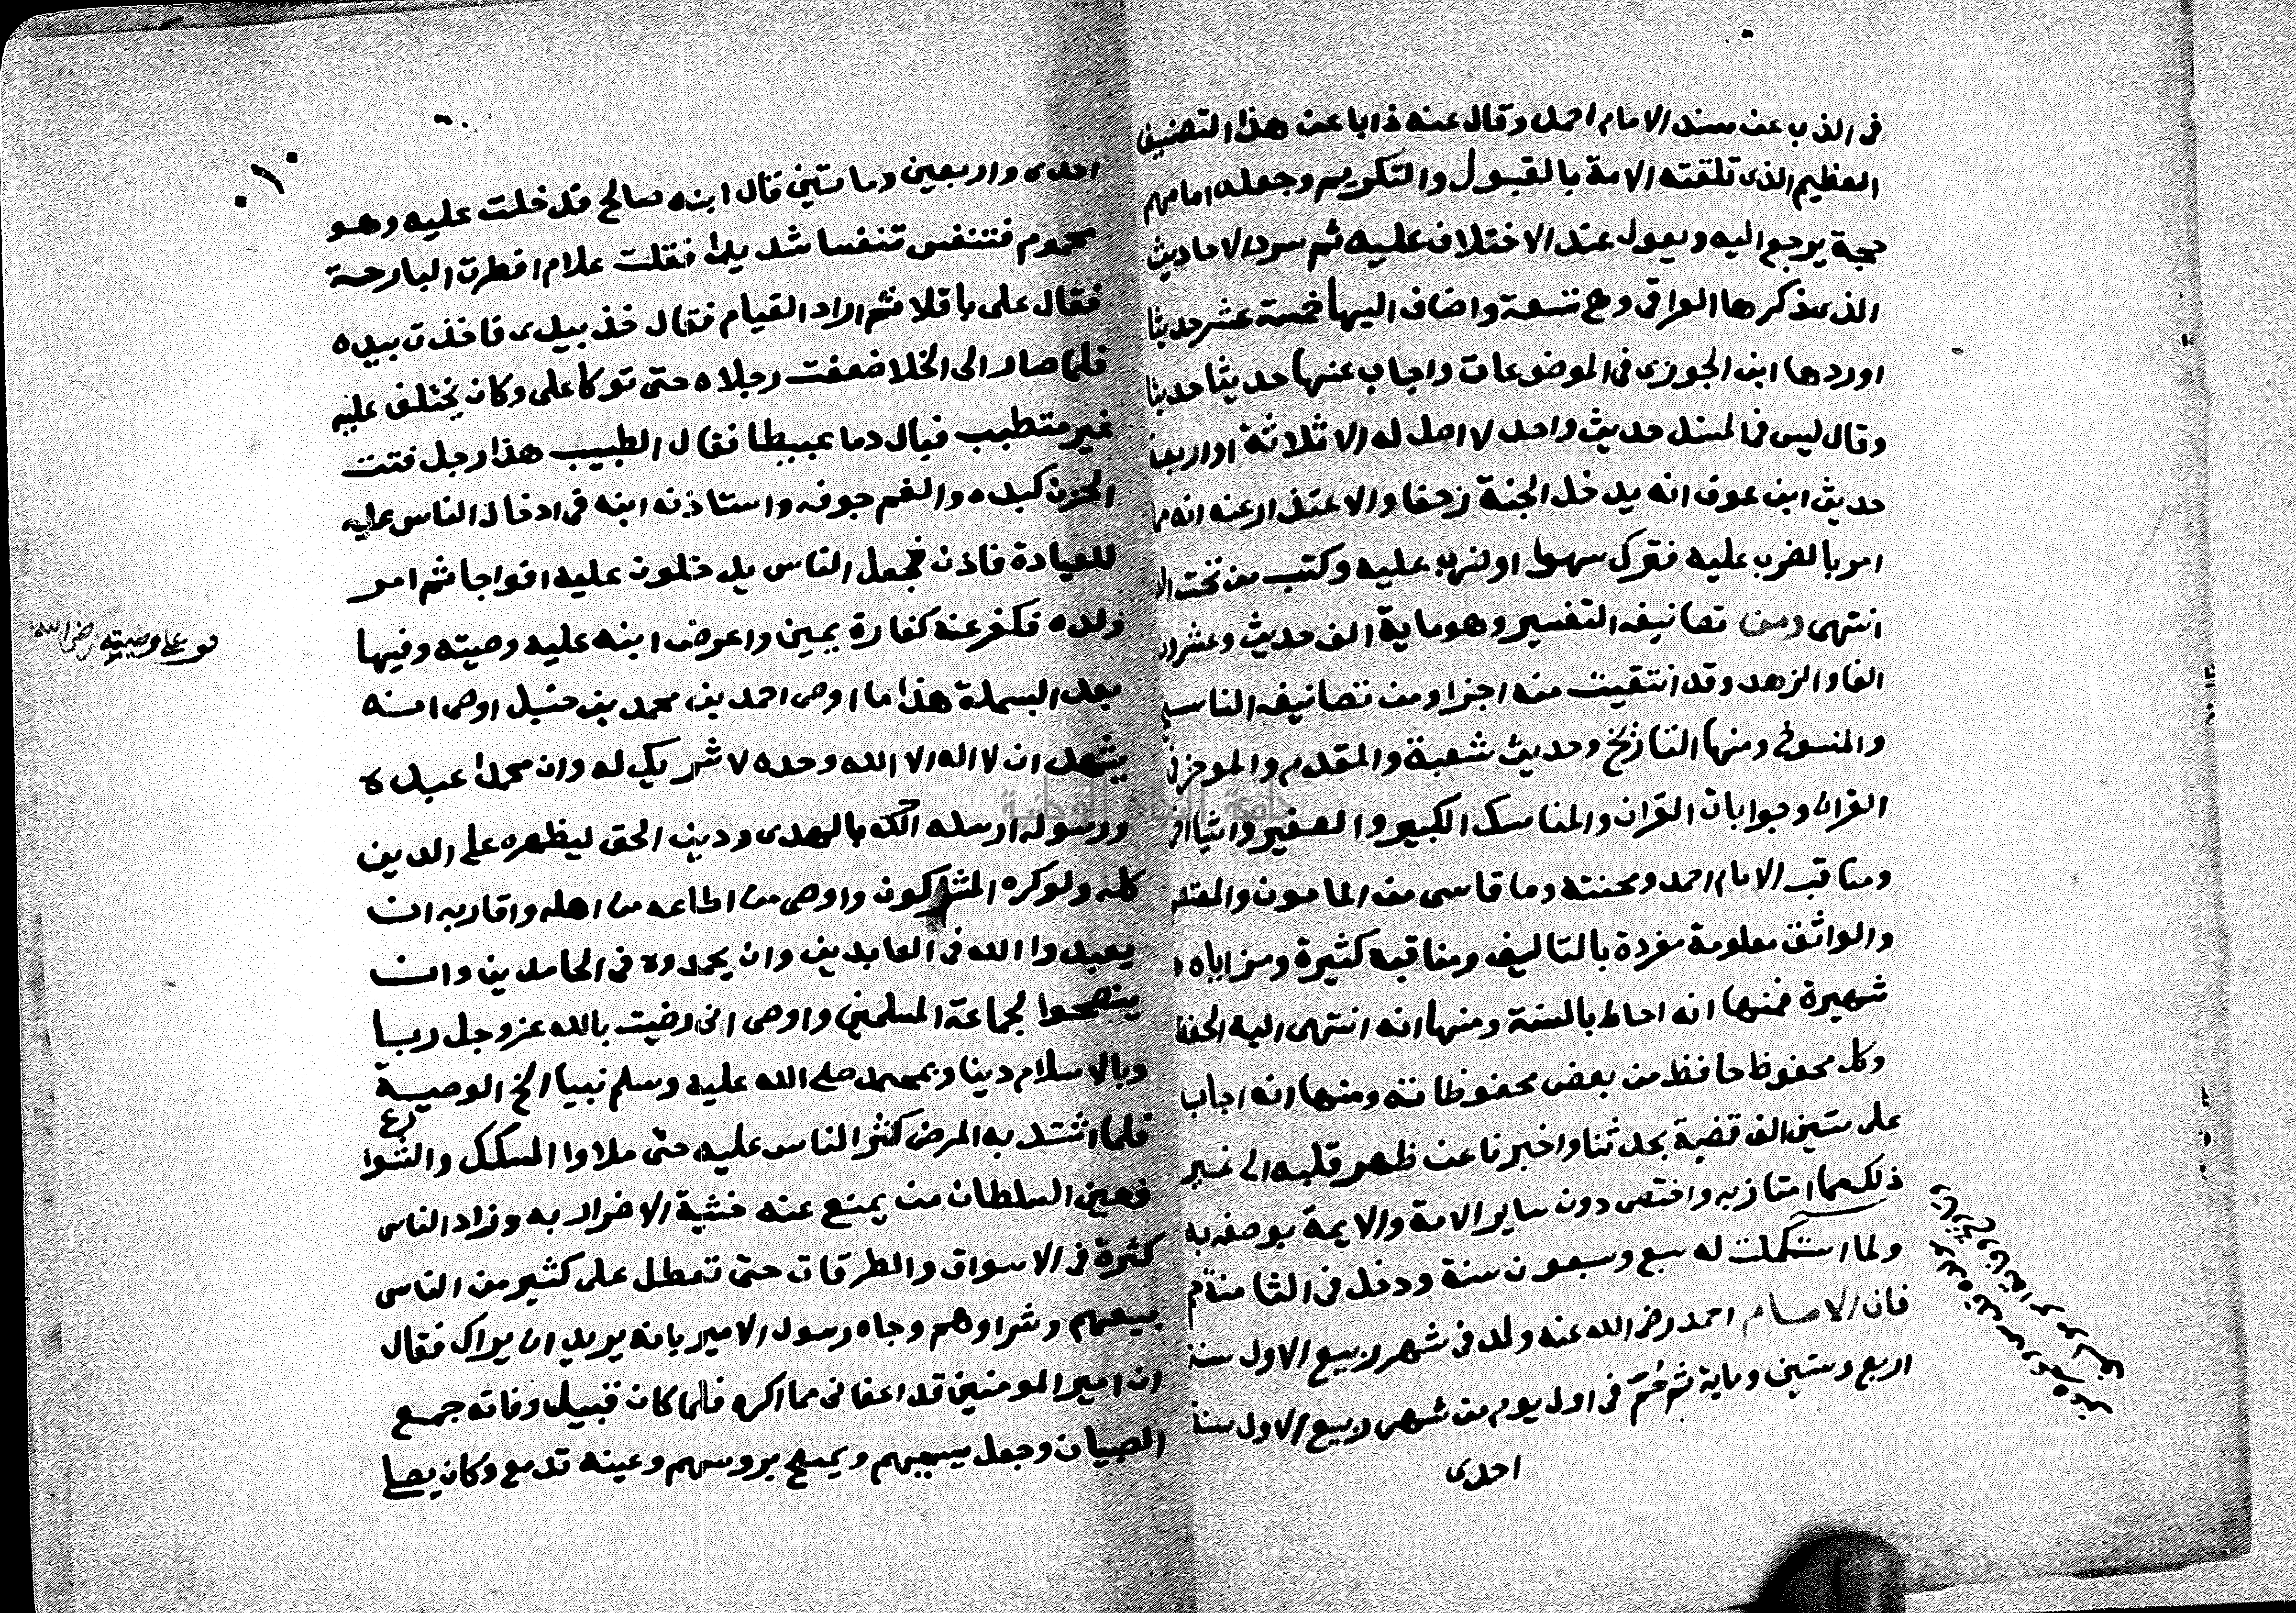 في الذب عن مسند الامام احمد وقال عنه ذابا عن هذا التصنيف
العظيم الذي تلقته الامة بالقبول والتكريم وجعله امامهم
حجة يرجع اليه ويعول عند الاختلاف عليه ثم سرد الاحاديث
الذي ذكرها العراقي وهي تسعة واضاف اليها خمسة عشر حديثا
اوردها ابن الجوزي في الموضوعات واجاب عنها حديثا حديثا
وقال ليس في المسند حديث واحد لا اصل له الا ثلاثة او اربعة
حديث ابن عوف انه يدخل الجنة زحفا والاعتذار عنه انه مما
امر بالضرب عليه فترك سهوا او ضرب عليه وكتب من تحت
انتهى ومن تصانيفه التفسير وهو ماية الف حديث وعشرون
الفا والزهد وقد انتقيت منه اجزا ومن تصانيفه الناسخ
والمنسوخ ومنها التاريخ وحديث شعبة والمقدم والموخر في
القران وجوابات القران والمناسك الكبير والصغير واشيا اخر
ومناقب الامام احمد ومحنته وما قاسى من المامون والمعتصم
والواثق معلومة مفردة بالتاليف ومناقبه كثيرة ومزاياه
شهيرة فمنها انه احاط بالسنة ومنها انه انتهى اليه الحفظ
وكل محفوظ حافظ من بعض محفوظاته ومنها انه اجاب
على ستين الف قضية بحدثنا واخبرنا عن ظهر قلبه الى غير
ذلك مما امتاز به واختص دون ساير الامة والايمة بوصفه به
ولما استكملت له سبع وسبعون سنة ودخل في الثامنة
فان الامام احمد رضي الله عنه ولد في شهر ربيع الاول سنة
اربع وستين وماية ثم حُمّ في اول يوم من شهر ربيع الاول سنة
احدى
احدى واربعين ومايتين قال ابنه صالح فدخلت عليه وهو
محموم فتنفس تنفسا شديدا فقلت علام افطرت البارحة
فقال على باقلا ثم اراد القيام فقال خذ بيدي فاخذت بيده
فلما صار الى الخلا ضعفت رجلاه حتى توكا على وكان يختلف عليه
غير متطبب فبال دما عبيطا فقال الطبيب هذا رجل فتت
الحزن كبده والغم جوفه واستاذنه ابنه في ادخال الناس عليه
للعيادة فاذن فجعل الناس يدخلون عليه افواجا ثم امر
ولده فكفر عنه كفارة يمين واعرض ابنه عليه وصيته وفيها
بعد البسملة هذا ما اوصى احمد بن محمد بن حنبل اوصى انه
يشهد ان لا اله الا الله وحده لا شريك له وان محمدا عبده
ورسوله ارسله الله بالهدى ودين الحق ليظهره على الدين
كله ولو كره المشركون واوصى من اطاعه من اهله واقاربه ان
يعبدوا الله في العابدين وان يحمدوه في الحامدين وان
ينصحوا لجماعة المسلمين واوصى اني رضيت بالله عز وجل ربا
وبالاسلام دينا وبمحمد صلى الله عليه وسلم نبيا الخ الوصية
فلما اشتد به المرض كثر الناس عليه حتى ملاوا السكك والشوارع
فعين السلطان من يمنع عنه خشية الاضرار به وزاد الناس
كثرة في الاسواق والطرقات حتى تعطل على كثير من الناس
بيعهم وشراوهم وجاه رسول الامير بانه يريد ان يراك فقال
ان امير المومنين قد اعفاني مما اكره فلما كان قبيل وفاته جمع
الصبيان وجعل يسميهم ويمسح بروسهم وعينه تدمع وكان يصلي
على وصيته رضي الله
جامعة النجاح الوطنية